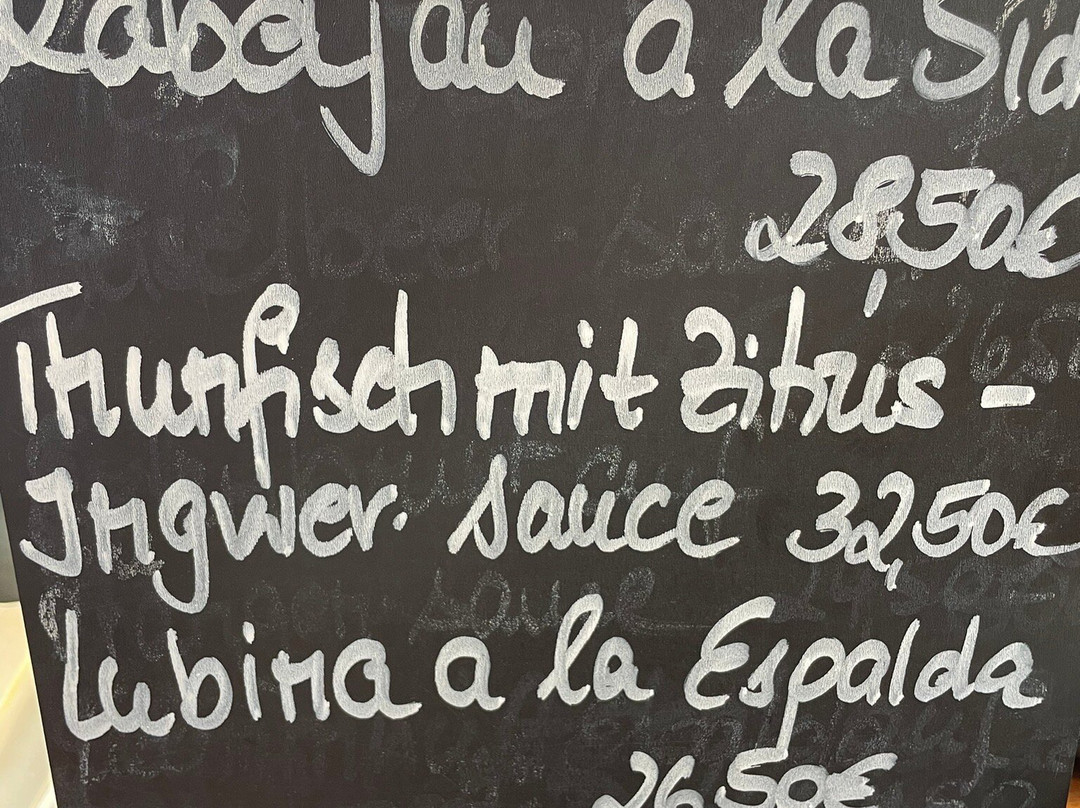 Kabeljau a la Sid
28,50€
Thunfisch mit Zitrus -
Ingwer. Sauce 32,50€
Lubina a la Espalda
26,50€